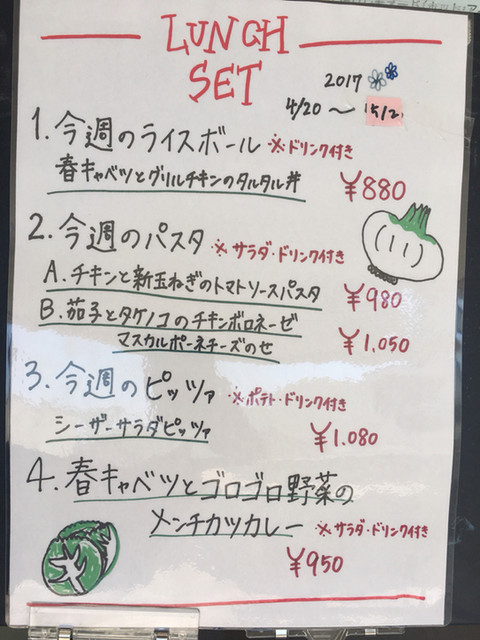 LUNCH
SET
2017
4/20 〜 5/2
1. 今週のライスボール ※ドリンク付き
春キャベツとグリルチキンのタルタル丼
¥880
2. 今週のパスタ ※サラダ・ドリンク付き
A. チキンと新玉ねぎのトマトソースパスタ ¥980
B. 茄子とタケノコのチキンボロネーゼ
マスカルポーネチーズのせ ¥1,050
3. 今週のピッツァ ※ポテト・ドリンク付き
シーザーサラダピッツァ ¥1.080
4. 春キャベツとゴロゴロ野菜の
メンチカツカレー ※サラダ・ドリンク付き
¥950